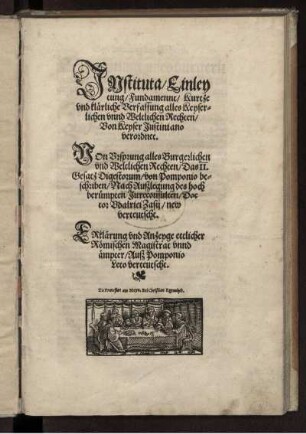 INstituta / Einley
tung / Fundament / Kurtze
vnd klärliche Verfassung alles Keyser-
lichen vnnd Weltlichen Rechten /
Von Keyser Justiniano
verordnet.
VOn Vrsprung alles Burgerlichen
vnd Weltlichen Rechten / Das II.
Gesatz Digestorum / von Pomponio be-
schriben / Nach Außlegung des hoch
berümpten Jurreconsulten / Doc-
tor Vdalrici Zasij / new
verteutscht.
ERklärung vnd Anzeyge etlicher
Römischen Magistrat vnnd
ämpter / Auß Pomponio
Leto verteutscht.